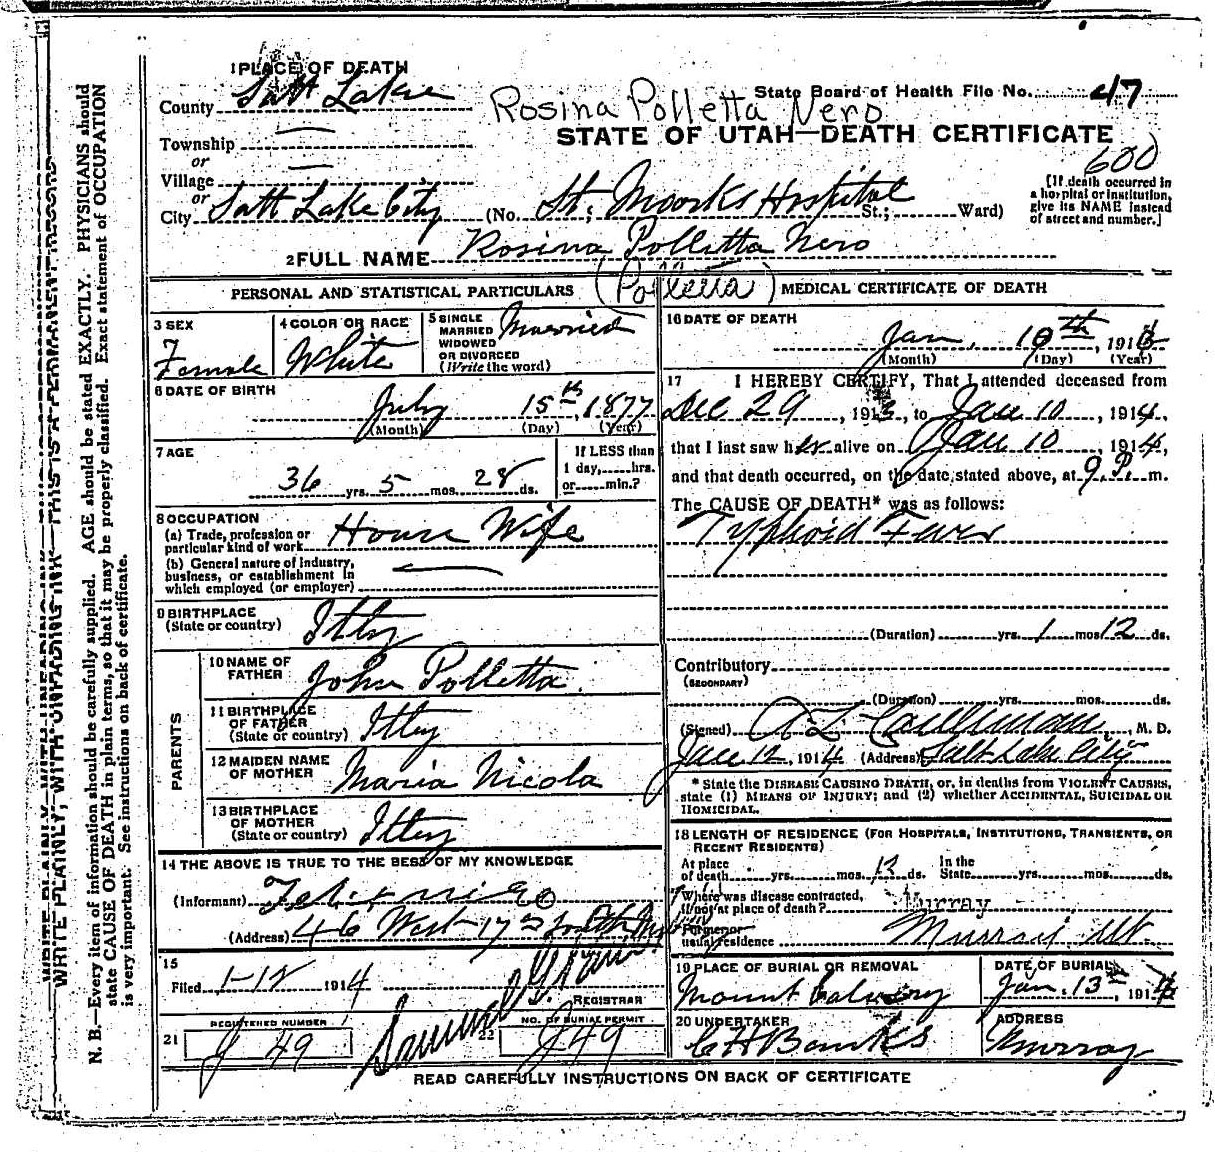 1 PLACE OF DEATH
County Salt Lake
State Board of Health File No. 47
Rosina Polletta Nero
STATE OF UTAH—DEATH CERTIFICATE
600
Township
or
Village
or
City Salt Lake City (No. St. Marks Hospital St.; Ward)
[If death occurred in a hospital or institution, give its NAME instead of street and number.]
2 FULL NAME Rosina Polletta Nero
(Polletta)
PERSONAL AND STATISTICAL PARTICULARS
3 SEX
Female
4 COLOR OR RACE
White
5 SINGLE MARRIED WIDOWED OR DIVORCED (Write the word)
Married
6 DATE OF BIRTH
July 15th, 1877
(Month) (Day) (Year)
7 AGE
36 yrs. 5 mos. 28 ds.
If LESS than 1 day, hrs. or min.?
8 OCCUPATION
(a) Trade, profession or particular kind of work House Wife
(b) General nature of industry, business, or establishment in which employed (or employer)
9 BIRTHPLACE (State or country) Itly
PARENTS
10 NAME OF FATHER John Polletta
11 BIRTHPLACE OF FATHER (State or country) Itly
12 MAIDEN NAME OF MOTHER Maria Nicola
13 BIRTHPLACE OF MOTHER (State or country) Itly
14 THE ABOVE IS TRUE TO THE BEST OF MY KNOWLEDGE
(Informant)
(Address) 46 West 17th South
15
Filed 1-12 1914
REGISTRAR
21 REGISTERED NUMBER
J 49
22 NO. OF BURIAL PERMIT
J 49
MEDICAL CERTIFICATE OF DEATH
16 DATE OF DEATH
Jan. 10th, 1914
(Month) (Day) (Year)
17 I HEREBY CERTIFY, That I attended deceased from
Dec 29, 1913, to Jan 10, 1914,
that I last saw her alive on Jan 10, 1914,
and that death occurred, on the date stated above, at 9 P. m.
The CAUSE OF DEATH* was as follows:
Typhoid Fever
(Duration) yrs. 1 mos. 12 ds.
Contributory
(SECONDARY)
(Duration) yrs. mos. ds.
(Signed) M. D.
Jan 12, 1914 (Address) Salt Lake City
* State the DISEASE CAUSING DEATH, or, in deaths from VIOLENT CAUSES, state (1) MEANS OF INJURY; and (2) whether ACCIDENTAL, SUICIDAL OR HOMICIDAL.
18 LENGTH OF RESIDENCE (FOR HOSPITALS, INSTITUTIOND, TRANSIENTS, OR RECENT RESIDENTS)
At place of death yrs. mos. 13 ds. In the State yrs. mos. ds.
Where was disease contracted, if not at place of death? Murray
Former or usual residence Murray Ut.
19 PLACE OF BURIAL OR REMOVAL
Mount Calvery
DATE OF BURIAL
Jan. 13th, 1914
20 UNDERTAKER
C H Banks
ADDRESS
Murray
READ CAREFULLY INSTRUCTIONS ON BACK OF CERTIFICATE
WRITE PLAINLY, WITH UNFADING INK—THIS IS A PERMANENT RECORD
N. B.—Every item of information should be carefully supplied. AGE should be stated EXACTLY. PHYSICIANS should
state CAUSE OF DEATH in plain terms, so that it may be properly classified. Exact statement of OCCUPATION
is very important. See instructions on back of certificate.